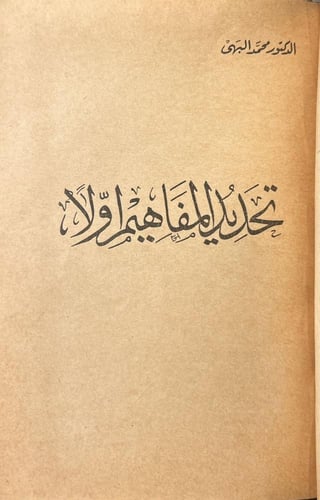 الدكتور محمّد البهى
تحديد المفاهيم اوّلاً